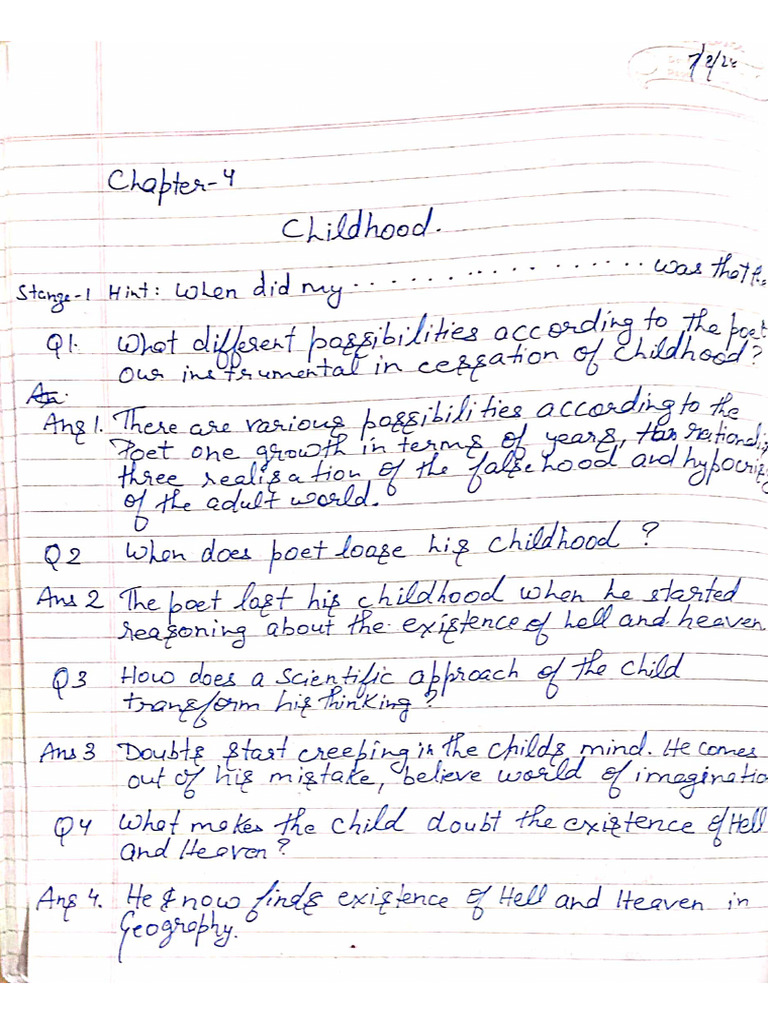 7/8/24
Chapter-4
Childhood.
Stange-1 Hint: When did my .................. was that the
Q1. What different possibilities according to the poet
our instrumental in cessation of childhood?
An.
Ans 1. There are various possibilities according to the
Poet one growth in terms of years,
three realisation of the falsehood and
of the adult world.
Q2 When does poet loose his childhood ?
Ans 2 The poet last his childhood when he started
reasoning about the existence of hell and heaven
Q3 How does a scientific approach of the child
transform his thinking?
Ans 3 Doubts start creeping in the childs mind. He comes
out of his mistake, believe world of
Q4 What makes the child doubt the existence of Hell
and Heaven?
Ans 4. He know finds existence of Hell and Heaven in
Geography.